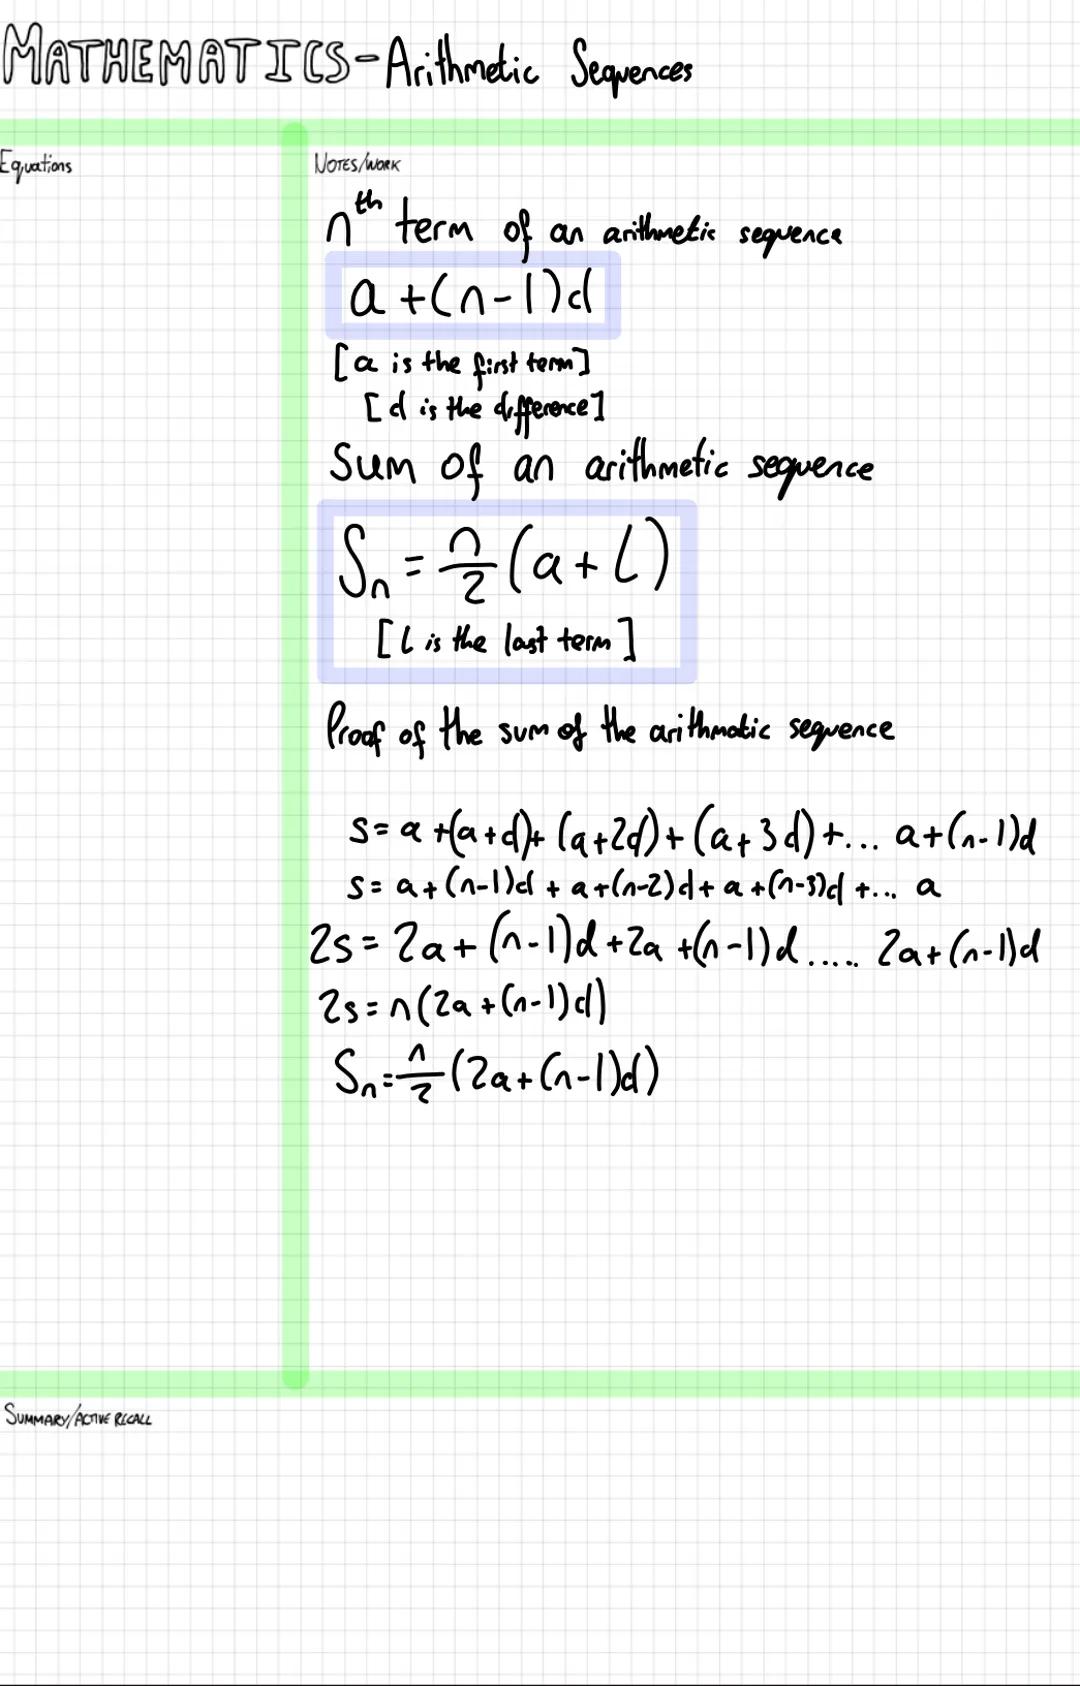 MATHEMATICS-Arithmetic Sequences
Equations
NOTES/WORK
nth term of an arithmetic sequence
a+(n-1)d
[a is the first term]
[d is the difference]
Sum of an arithmetic sequence
Sn = n/2 (a+L)
[L is the last term]
Proof of the sum of the arithmatic sequence
s= a +(a+d)+ (a+2d)+(a+3d)+... a+(n-1)d
s= a+(n-1)d + a+(n-2)d+ a+(n-3)d +... a
2s= 2a+(n-1)d+2a+(n-1)d..... 2a+(n-1)d
2s=n(2a+(n-1)d)
Sn=n/2(2a+(n-1)d)
SUMMARY/ACTIVE RECALL